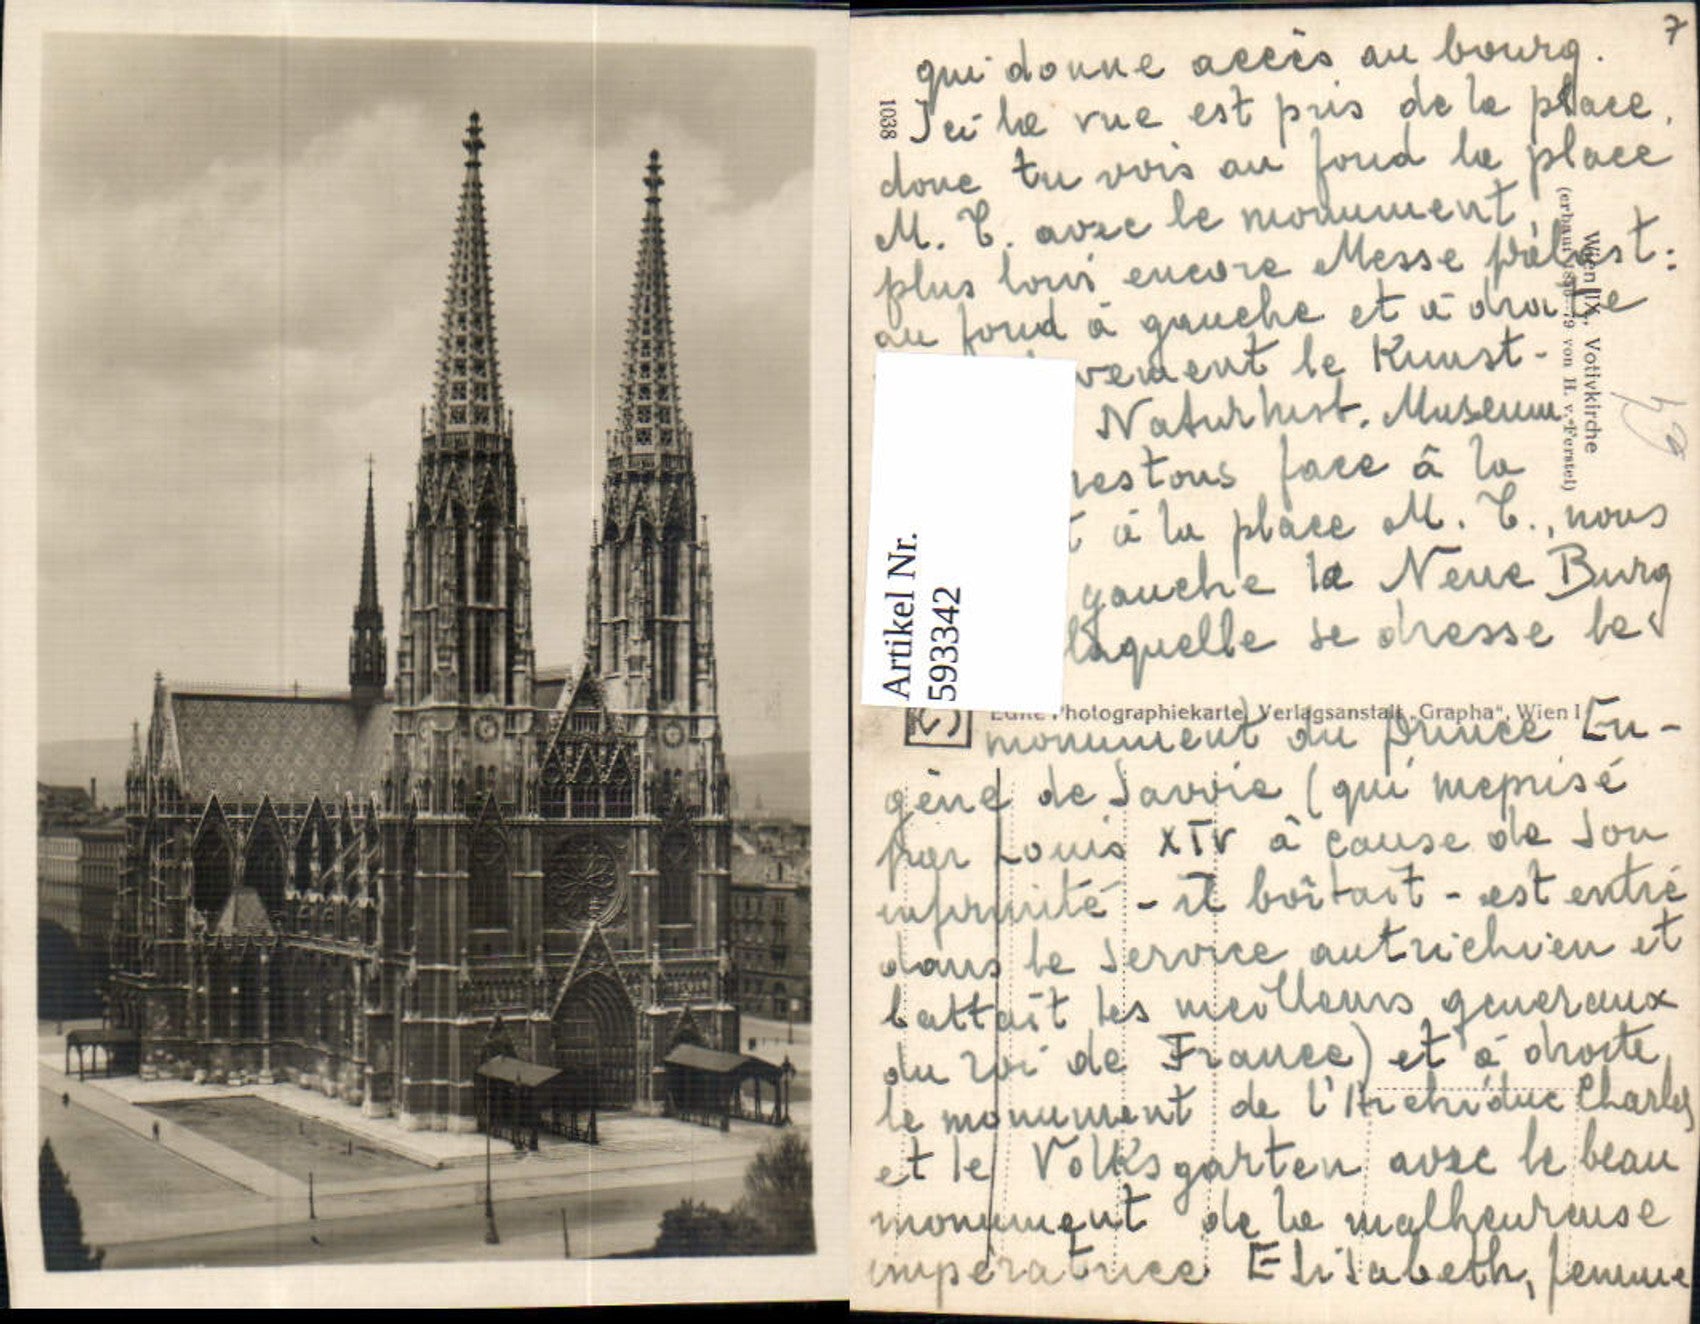 7
qui donne accès au bourg.
Ici la vue est pris de la place,
donc tu vois au fond la place
M. T. avec le monument,
plus loin encore Messe palast:
au fond à gauche et à droite
vement le Kunst-
Naturhist. Museum
restons face à la
t à la place M. T., nous
gauche la Neue Burg
laquelle se dresse le
monument du prince Eu-
gène de Savoie (qui meprisé
par Louis XIV à cause de son
infirmité - il boîtait - est entré
dans le service autrichien et
battait les meilleurs generaux
du roi de France) et à droite
le monument de l'Archiduc Charles
et le Volksgarten avec le beau
monument de la malheureuse
imperatrice Elisabeth, femme
1038
Wien IX., Votivkirche
(erbaut 1856-79 von H. v. Ferstel)
64
Artikel Nr.
593342
Echte Photographiekarte, Verlagsanstalt „Grapha“, Wien I